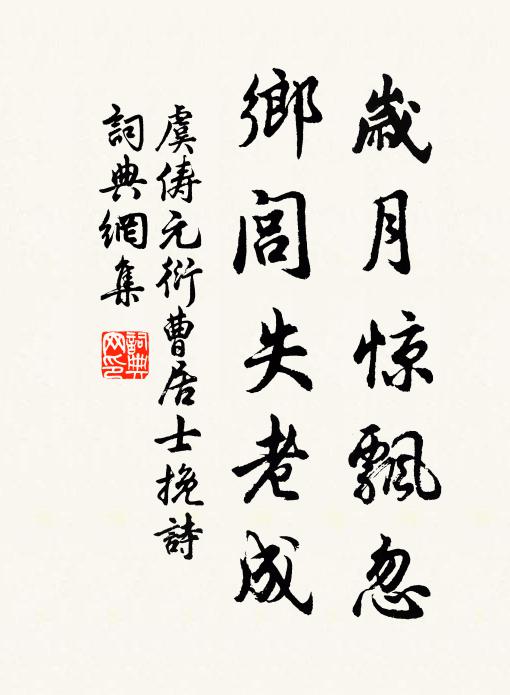 歲月惊飄忽
鄉閭失老成
虞儔元衍曹居士挽詩
詞典網集
詞典网印